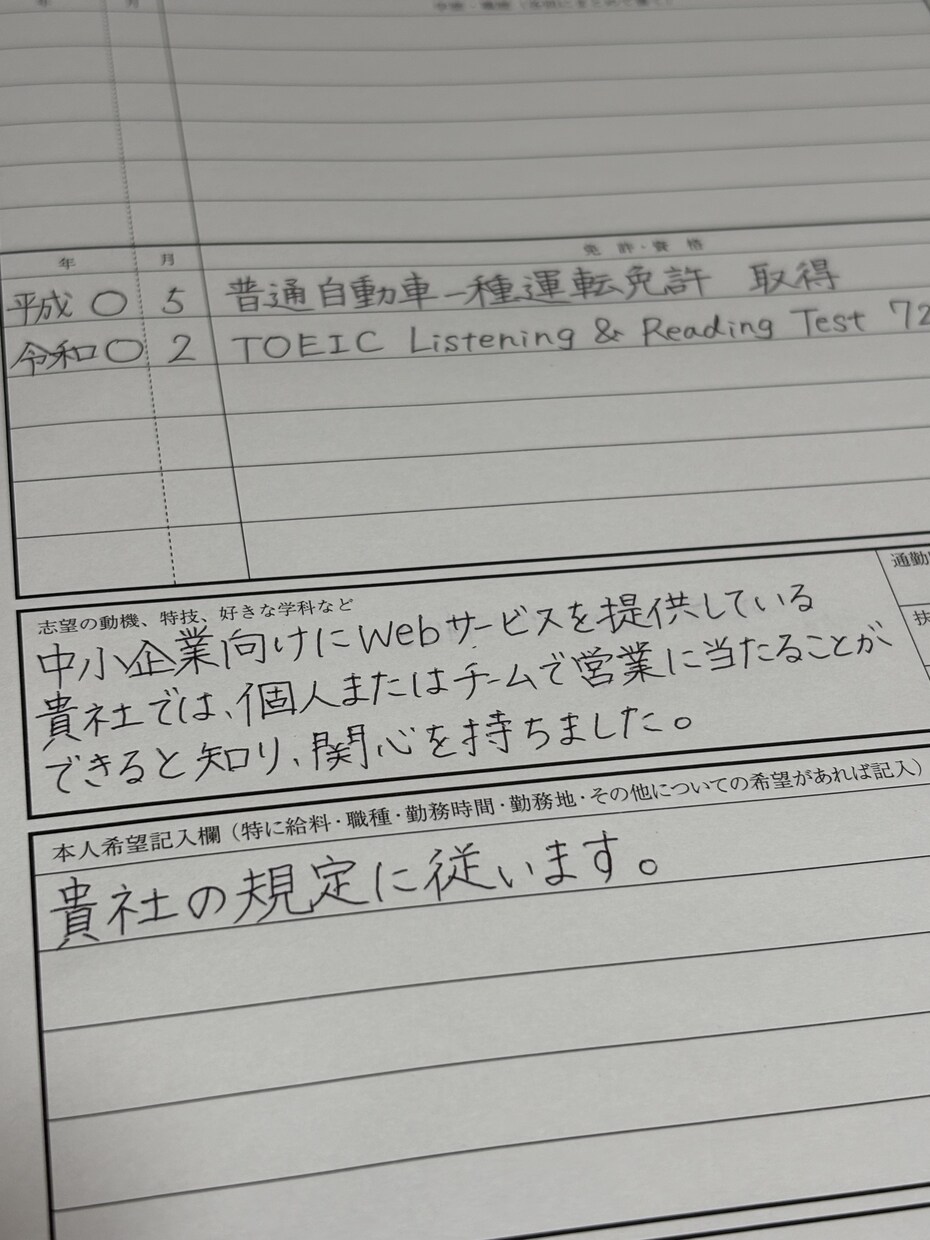 年 月 免許・資格
平成 〇 5 普通自動車一種運転免許 取得
令和〇 2 TOEIC Listening & Reading Test 72
通勤
志望の動機、特技、好きな学科など
中小企業向けにWebサービスを提供している
貴社では、個人またはチームで営業に当たることが
できると知り、関心を持ちました。
扶
本人希望記入欄（特に給料・職種・勤務時間・勤務地・その他についての希望があれば記入）
貴社の規定に従います。